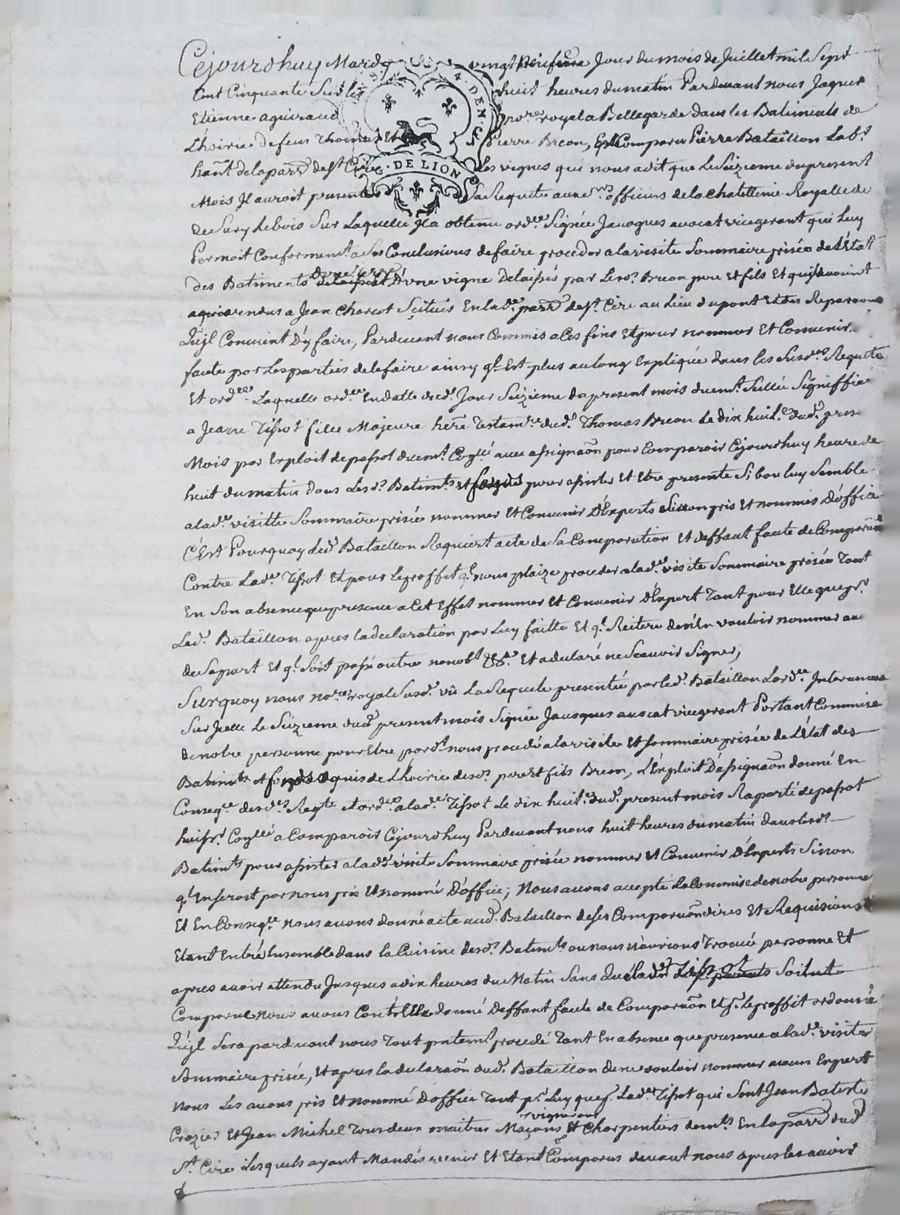 Cejourdhuy Mardy vingt Jour du mois de Juillet mil Sept
Cent Cinquante Six huit heures du matin Pardevant nous Jaques
Etienne aguiraud nore royal a Bellegarde dans les Batiments de
Lhoirie de feu Thomas Et Pierre Breon, Est Comparu Pierre Bataillon Labr
hant de la parr de st Cire les vignes qui nous a dit que Le Seizieme du present
Mois Il auroit presenté Sa Requete aux officiers de la chatellenie Royalle de
de Sury Lebois Sur Laquelle Il a obtenu ordce Signée Jacques avocat vicegerant qui Luy
Permoit Conforment a Ses Conclusions de faire proceder a la visite Sommaire prisée de L'Etat
des Batiments D'une vigne Delaissés par Lesd. Breon pere Et fils Et qui avoient
vendus a Jean Scitués En lade parr de st Cire au Lieu du pont Et des Reparaons
Quil Convient D'y faire, Pardevant nous Commis a Ces fins Et pour nommer Et Convenir
faute par Les parties de le faire ainsy q. Est plus au long Expliqué dans les Susd. Requete
Et ordce Laquelle ordce En datte dud. Jour Seizieme du present mois duemt Sellée Signiffiée
a Jeanne Tissot fille Majeure here Testamre dud. Thomas Breon Le dix huit. dud. pres.
Mois par Exploit de passot duemt Collé avec assignaon pour Comparoir Cejourdhuy heure de
huit du matin dans Lesd. Batimts et fonds pour assister et Etre presente Si bon luy Semble
a lad. visitte Sommaire prisée nommer Et Convenir D'Experts Sinon pris et nommés D'office
C'Est Pourquoy led. Bataillon Requiert acte de Sa Comparution Et deffaut faute de Comparaon
Contre Lade Tissot Et pour Le proffit q. nous plaize proceder a lade visite Sommaire prisée Tant
En Son absence que presence a Cet Effet nommer Et Convenir D'Expert Tant pour Elle que pr
Led. Bataillon apres la declaration par Luy faitte Et q. Reitere de n'En vouloir nommer au
de Sa part Et q. Soit passé outre nonobt Et a declaré ne Scavoir Signer,
Surquoy nous nore royal Susd. vu La Requete presentée par led. Bataillon Lordce Intervenue
Sur Icelle Le Seizieme dud. present mois Signée Jacques avocat vicegerant Portant Commise
de notre personne pour Etre par d. nous procedé a la visite Et Sommaire prisée de L'Etat des
Batimts et fonds de Lhoirie desd. pere et fils Breon, L'Exploit D'assignaon donné En
Conseqce desd. Reqte & ordce a lade Tissot Le dix huit. dud. present mois Raporté de passot
huissr Collé a Comparoir Cejourdhuy Pardevant nous huit heures du matin dans lesd.
Batimts pour assister a lade visite Sommaire prisée nommer Et Convenir D'Experts Sinon
q. En Seroit par nous pris Et nommé D'office; Nous avons accepté la Commise de notre personne
Et En Conseqce nous avons donné acte aud. Bataillon de ses Comparaon dires Et Requisions
Etant Entré Ensemble dans la Cuisine desd. Batimts ou nous n'avions Trouvé personne Et
apres avoir attendu Jusques a dix heures du Matin Sans que lade Tissot Soit
Comparue nous avons Contr'Elle donné Deffaut faute de Comparaon Et pr le proffit ordonné
Quil Sera pardevant nous Tout presentemt procedé Tant En absence que presence a lade visite
Sommaire prisée, Et apres la declaraon dud. Bataillon de ne vouloir nommer aucun Expert
nous Les avons pris Et nommé D'office Tant pr Luy que pr Lade Tissot qui Sont Jean Batiste
Crozier Et Jean Michel Tous deux maitres Maçons vigneron Et Charpentiers demts En la parr dud.
St. Cire Lesquels ayant Mandés venir Et Etant Comparus devant nous apres les avoir
G. DE LION